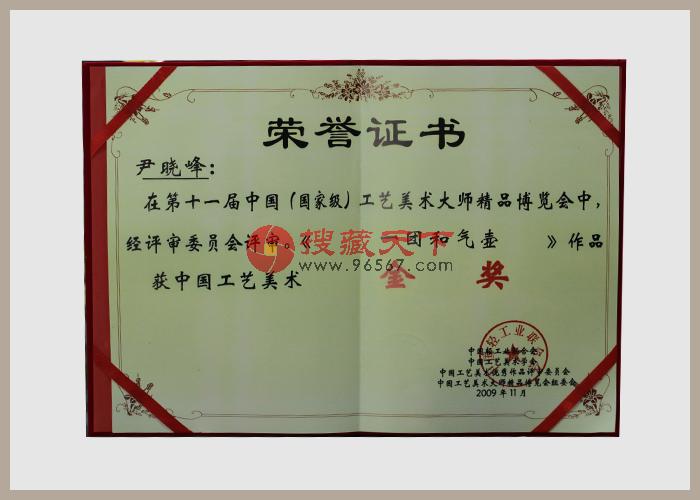 荣誉证书
尹晓峰：
在第十一届中国（国家级）工艺美术大师精品博览会中，
经评审委员会评审。《 一团和气壶 》作品
搜藏天下
www.96567.com
获中国工艺美术 金 奖
中国轻工业联合会
中国工艺美术学会
中国工艺美术优秀作品评审委员会
中国工艺美术大师精品博览会组委会
2009年11月